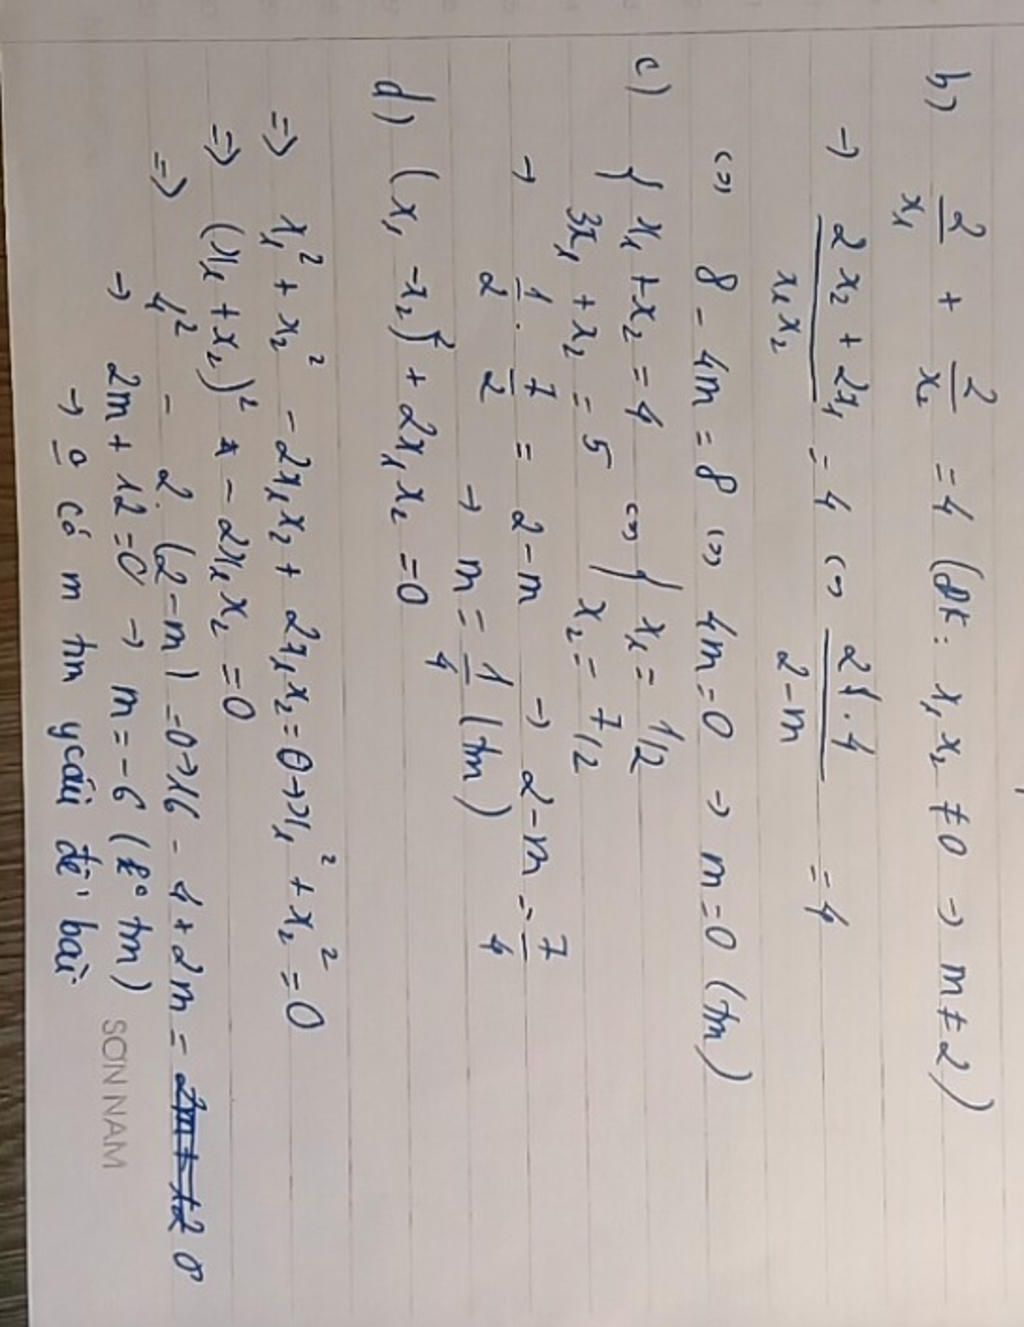 b) 2/x₁ + 2/x₂ = 4 (đk: x₁x₂ ≠ 0 → m ≠ 2)
→ (2x₂ + 2x₁)/(x₁x₂) = 4 ⇔ 2.4/(2-m) = 4
⇔ 8 - 4m = 8 ⇔ 4m = 0 → m = 0 (tm)
c) { x₁ + x₂ = 4 ⇔ { x₁ = 1/2
3x₁ + x₂ = 5 x₂ = 7/2
→ 1/2 . 7/2 = 2-m → 2-m = 7/4
→ m = 1/4 (tm)
d) (x₁ - x₂)² + 2x₁x₂ = 0
=> x₁² + x₂² - 2x₁x₂ + 2x₁x₂ = 0 → x₁² + x₂² = 0
=> (x₁ + x₂)² - 2x₁x₂ = 0
=> 4² - 2.(2-m) = 0 → 16 - 4 + 2m = 0
→ 2m + 12 = 0 → m = -6 (k° tm)
→ có m tm ycầu đề bài
SON NAM